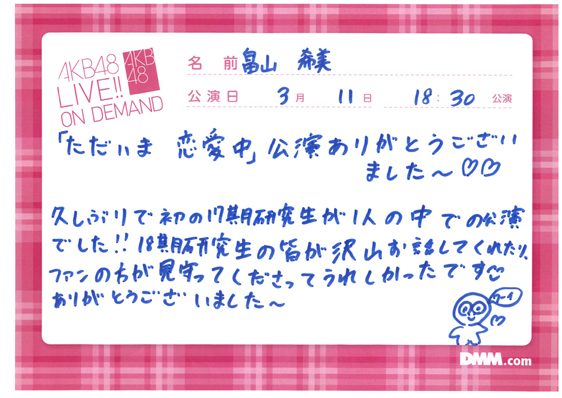 AKB48
LIVE!!
ON DEMAND
AKB
48
名 前 畠山 希美
公演日 3月 11日 18:30 公演
「ただいま 恋愛中」公演ありがとうござい
ました〜♡♡
久しぶりで初の17期研究生が1人の中での公演
でした!! 18期研究生の皆が沢山お話してくれたり、
ファンの方が見守ってくださってうれしかったです
ありがとうございました〜
ワーイ
DMM.com